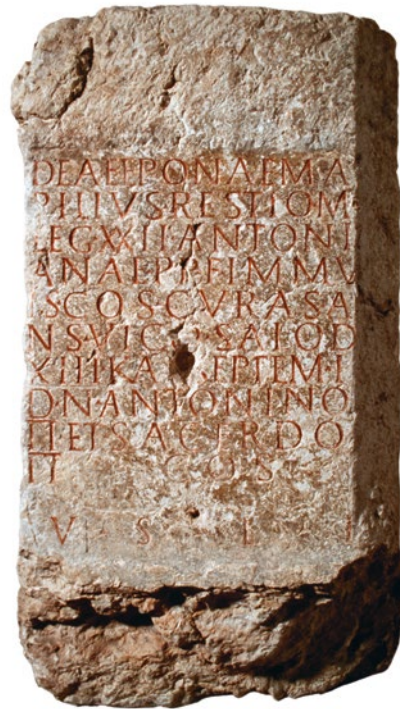 DEAEEPONAEMA
PILIVSRESTIOM
LEGXXIIANTONI
ANAEPPFIMMV
ISCOSCVRASA
NSVICOSALOD
XIIIIKALSEPTEM
DNANTONINO
IIETSACERDO
II COS
V S L